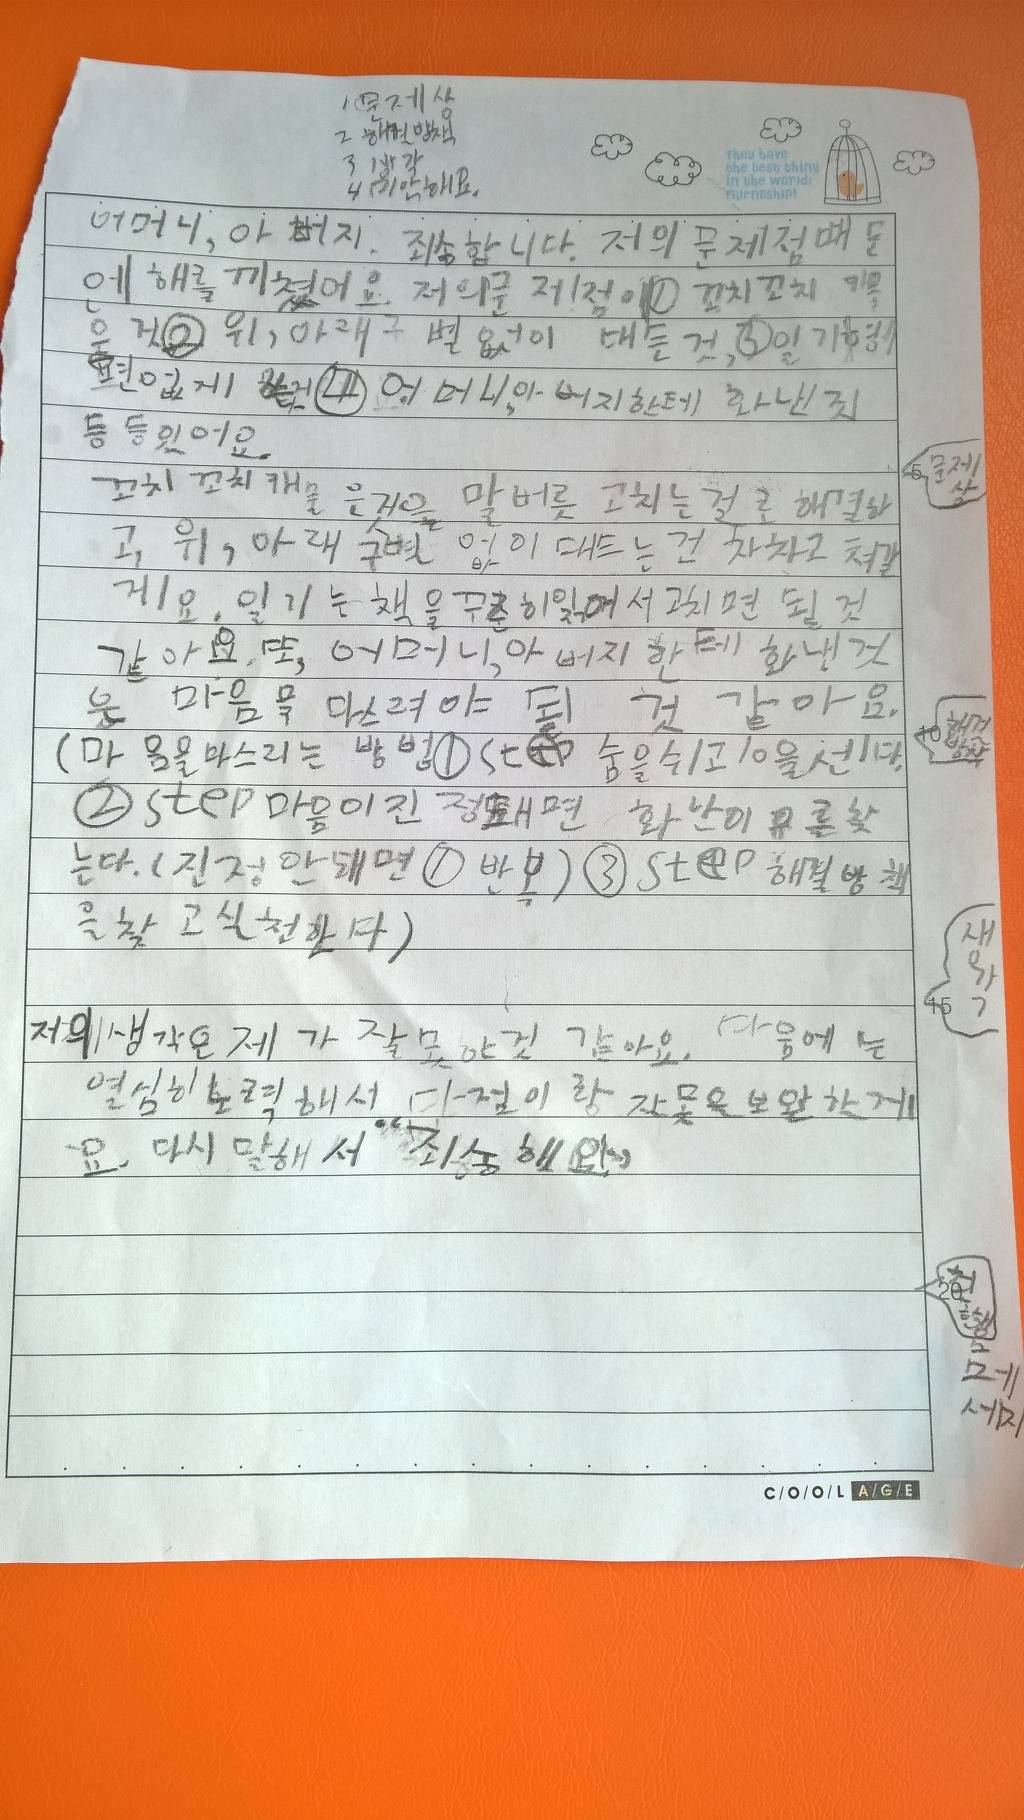 1 문제상
2 해결방책
3 생각
4 미안해요.
They have
the best thing
in the world:
FRIENDSHIP!
어머니, 아버지. 죄송합니다. 저의 문제점때문
에 해를 끼쳤어요. 저의문제점이① 꼬치꼬치 캐물
은 것② 위, 아래구별없이 대든것, ③일기형
편없게 쓴것④ 어머니,아버지한테 화낸죄
등등있어요.
꼬치꼬치캐물은것을 말버릇 고치는걸로 해결하
고, 위, 아래 구별 없이 대드는건 차차고쳐갈
게요. 일기는책을꾸준히읽어서고치면 될것
같아요. 또, 어머니,아버지한테 화낸것
은 마음물 다스려야 될 것 같아요.
(마음을다스리는 방법①step 숨을쉬고10을센다.
②step마음이진정돼면 화난이유를찾
는다.(진정안돼면①반복)③step해결방책
을찾고실천한다)
저의생각은제가잘못한것 같아요. 다음에는
열심히노력해서 다점이랑 잘못을보완할게
요. 다시말해서 "죄송해요"
5
문제
상
10
해결
방책
15
생
각
20
메
세지
C/O/O/L A/G/E